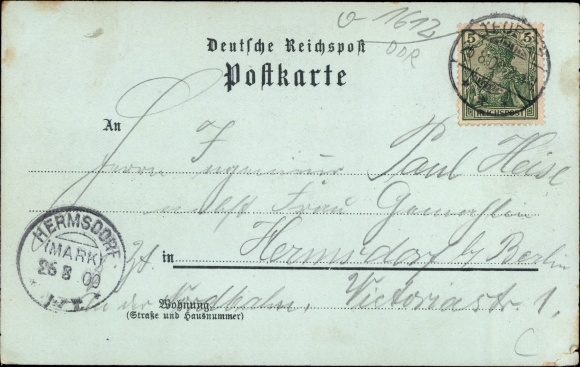 o-1612
DDR
Deutsche Reichspost
Postkarte
5 5
REICHSPOST
An
Herrn Ingenieur Paul Heise
nebst Frau Gemahlin
in Hermsdorf b. Berlin
An der Nordbahn, Victoriastr. 1.
Wohnung
(Straße und Hausnummer)
HERMSDORF
(MARK)
26 8 00